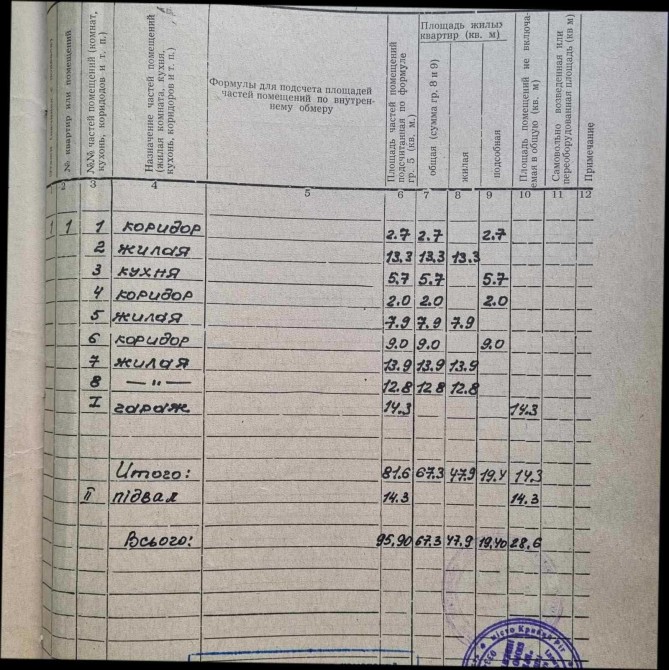 № квартир или помещений
№№ частей помещений (комнат, кухонь, коридодов и т. п.)
Назначение частей помещений (жилая комната, кухня, кухонь, коридоров и т. п.)
Формулы для подсчета площадей
частей помещений по внутрен-
нему обмеру
Площадь частей помещений подсчитанная по формуле гр. 5 (кв. м.)
Площадь жилых
квартир (кв. м)
общая (сумма гр. 8 и 9)
жилая
подсобная
Площадь помещений не включа-
емая в общую (кв. м)
Самовольно возведенная или
переоборудованная площадь (кв м)
Примечание
2 3 4 5 6 7 8 9 10 11 12
1 1 1 коридор 2.7 2.7 2.7
2 жилая 13.3 13.3 13.3
3 кухня 5.7 5.7 5.7
4 коридор 2.0 2.0 2.0
5 жилая 7.9 7.9 7.9
6 коридор 9.0 9.0 9.0
7 жилая 13.9 13.9 13.9
8 —"— 12.8 12.8 12.8
I гараж 14.3 14.3
Итого: 81.6 67.3 47.9 19.4 14.3
II підвал 14.3 14.3
Всього: 95.90 67.3 47.9 19.40 28.6
місто Кривий Ріг